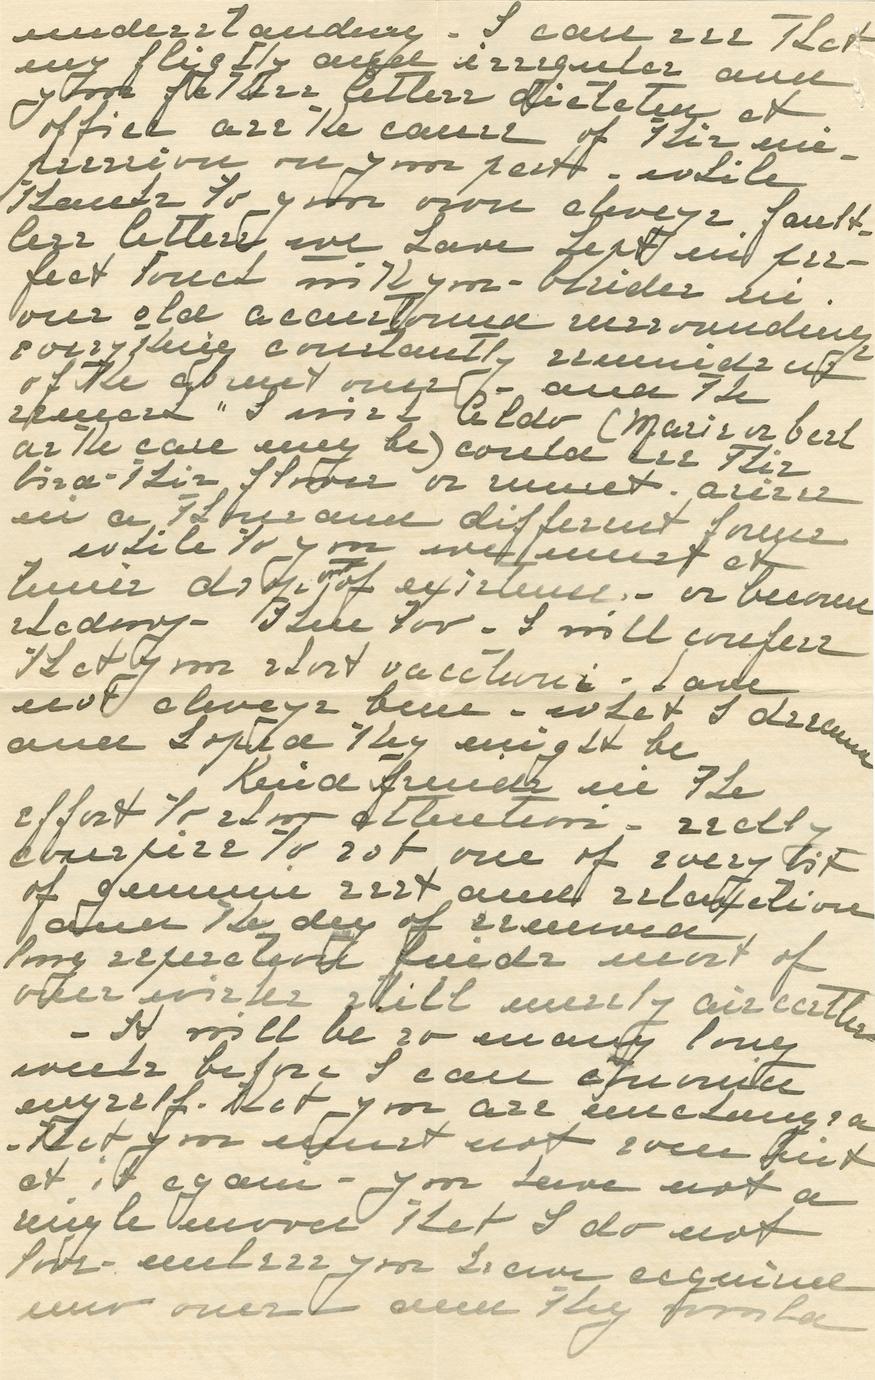 understanding - I can see that
my flighty and irregular and
your father's letters dictated at
office are the cause of this im-
pression on your part - while
thanks to your own always fault-
less letters we have kept in per-
fect touch with you - besides in
our old accustomed surroundings
everything constantly reminds us
of the absent ones - and the
remark "I wish Aldo (Marie or Carl
as the case may be) could see this
bird - this flower or sunset - arises
in a thousand different forms
while to you we must at
times drop out of existence - or become
shadowy - Then too - I will confess
that your short vacations - have
not always been - what I dreamed
and hoped they might be
Kind friends in the
effort to show attention - really
conspire to rob one of every bit
of genuine rest and relaxation
and the day of renewed
long separation finds most of
our wishes still merely air castles
- It will be so many long
weeks before I can convince
myself - that you are unchanged
- that you must not even hint
at it again - you have not a
single mood that I do not
love - unless you have acquired
new ones - and they would